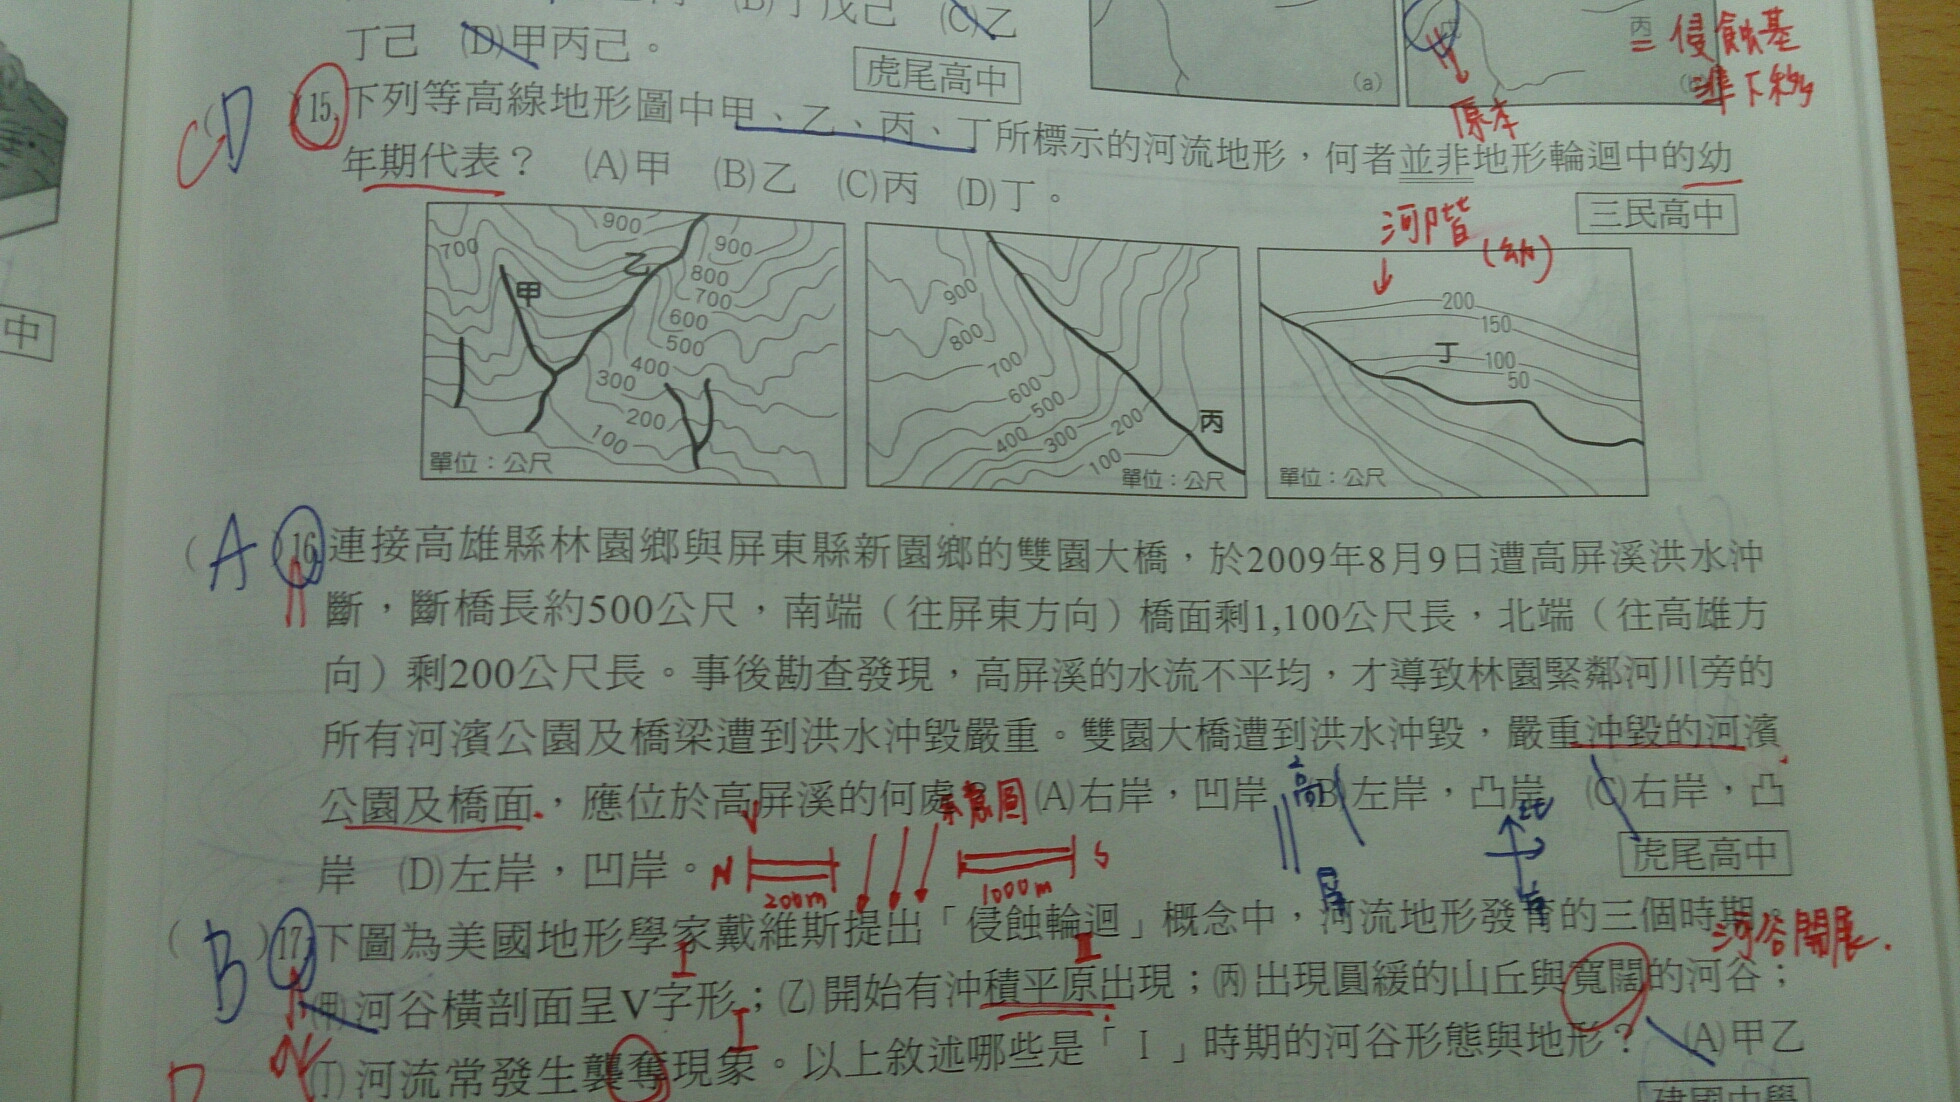 (B)丁戊己 (C)乙
丁己 (D)甲丙己。
虎尾高中
(a)
丙 侵蝕基
準下移
原本
CD
15.下列等高線地形圖中甲、乙、丙、丁所標示的河流地形，何者並非地形輪迴中的幼
年期代表？ (A)甲 (B)乙 (C)丙 (D)丁。
三民高中
河階
(幼)
700 900 乙 900 800 700 600 500 400 300 200 100 甲
單位：公尺
900 800 700 600 500 400 300 200 100 丙
單位：公尺
200 150 丁 100 50
單位：公尺
中
(A) 16.連接高雄縣林園鄉與屏東縣新園鄉的雙園大橋，於2009年8月9日遭高屏溪洪水沖
斷，斷橋長約500公尺，南端（往屏東方向）橋面剩1,100公尺長，北端（往高雄方
向）剩200公尺長。事後勘查發現，高屏溪的水流不平均，才導致林園緊鄰河川旁的
所有河濱公園及橋梁遭到洪水沖毀嚴重。雙園大橋遭到洪水沖毀，嚴重沖毀的河濱
公園及橋面，應位於高屏溪的何處？ (A)右岸，凹岸 (B)左岸，凸岸 (C)右岸，凸
岸 (D)左岸，凹岸。
虎尾高中
示意圖
N 200m 1000m S
高
屏
北
南
(B) 17.下圖為美國地形學家戴維斯提出「侵蝕輪迴」概念中，河流地形發育的三個時期。
河谷開展.
I II
(甲)河谷橫剖面呈V字形；(乙)開始有沖積平原出現；(丙)出現圓緩的山丘與寬闊的河谷；
I
ok
(丁)河流常發生襲奪現象。以上敘述哪些是「I」時期的河谷形態與地形？ (A)甲乙
建國中學